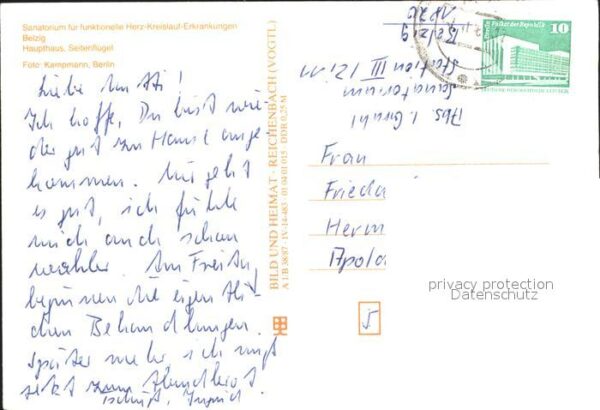 Sanatorium für funktionelle Herz-Kreislauf-Erkrankungen
Belzig
Haupthaus, Seitenflügel
Foto: Kampmann, Berlin
Liebe Mutti!
Ich hoffe, Du bist wie-
der gut zu Hause ange
kommen. Mir geht
es gut, ich fühle
mich auch schon
wohler. Am Freitag
beginnen die eigentli-
chen Behandlungen.
Später mehr, ich muß
jetzt zum Abendbrot
Tschüß, Ingrid
BILD UND HEIMAT · REICHENBACH (VOGTL)
A 1/B 38/87 · IV-14-483 · 01 04 01 015 · DDR 0,25 M
Abs. I.
Sanatorium
Station III
Belzig
1820
10
Palast der Republik
Frau
Frieda
Herm
Apola
privacy protection
Datenschutz
5